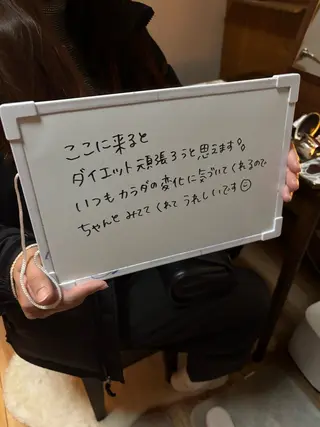 ここに来ると
ダイエット頑張ろうと思えます。
いつもカラダの変化に気づいてくれるので
ちゃんとみててくれてうれしいです